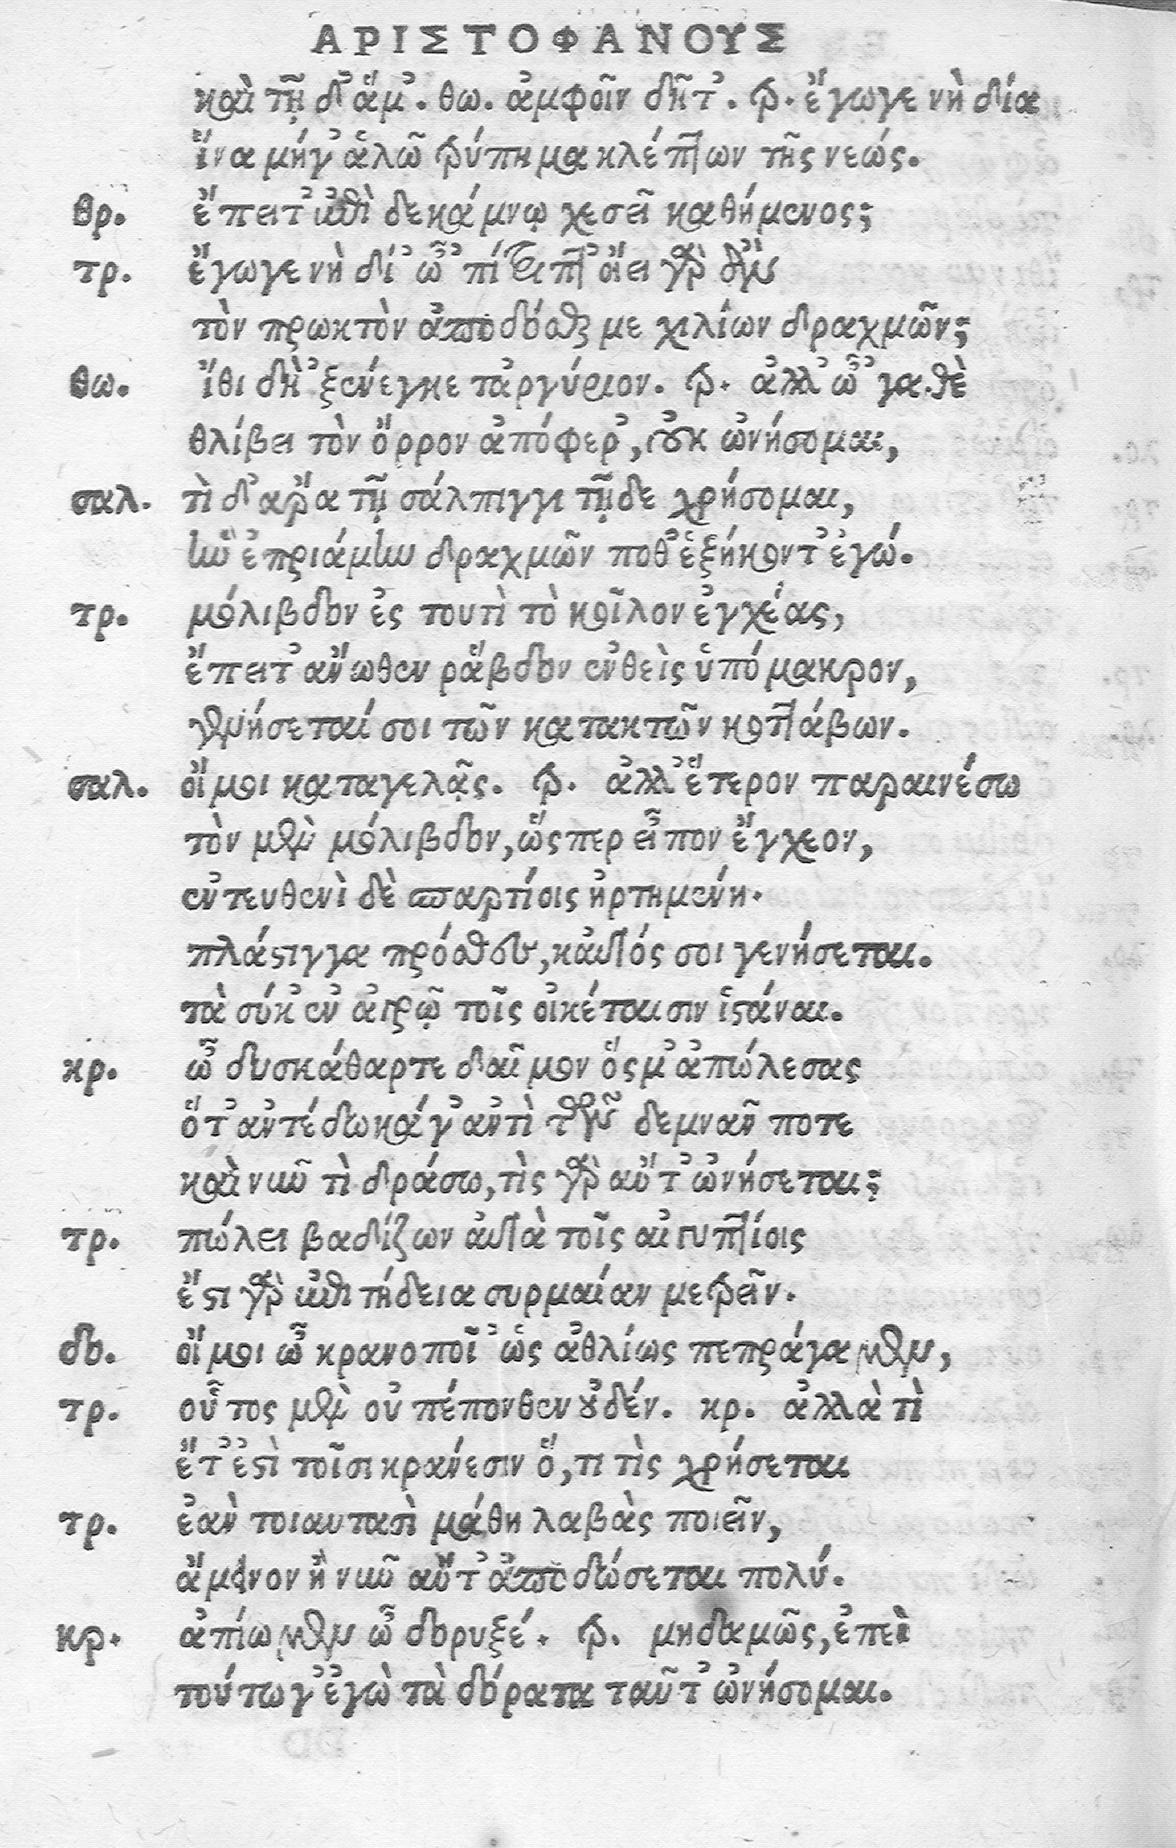 ΑΡΙΣΤΟΦΑΝΟΥΣ
καὶ τῇ δ' ἅμ'. θω. ἀμφοῖν δῆτ'. τρ. ἔγωγε νὴ δία
ἵνα μή γ' ἁλῶ τρύπημα κλέπτων τῆς νεώς.
θρ. ἔπειτ' ἐπὶ δεκάμνῳ χεσεῖ καθήμενος;
τρ. ἔγωγε νὴ δί' ὦ 'πίτριπτ' οἴει γὰρ
τὸν πρωκτὸν ἀποδόσθαι με χιλίων δραχμῶν;
θω. ἴθι δὴ 'ξένεγκε τἀργύριον. τρ. ἀλλ' ὦ 'γαθὲ
θλίβει τὸν ὄρρον ἀπόφερ', οὐκ ὠνήσομαι,
σαλ. τὶ δ' ἄρα τῇ σάλπιγγι τῇδε χρήσομαι,
ἣν ἐπριάμην δραχμῶν ποθ' ἑξήκοντ' ἐγώ.
τρ. μόλιβδον ἐς τουτὶ τὸ κοῖλον ἐγχέας,
ἔπειτ' ἄνωθεν ῥάβδον ἐνθεὶς ὑπόμακρον,
γενήσεταί σοι τῶν κατακτῶν κοττάβων.
σαλ. οἴμοι καταγελᾷς. τρ. ἀλλ' ἕτερον παραινέσω
τὸν μὲν μόλιβδον, ὥςπερ εἶπον ἔγχεον,
ἐντευθενὶ δὲ σπαρτίοις ἠρτημένη.
πλάστιγγα πρόσθες, καὐτός σοι γενήσεται.
τὰ σύκ' ἐν ἀγρῷ τοῖς οἰκέταισιν ἱστάναι.
κρ. ὦ δυσκάθαρτε δαῖμον ὅς μ' ἀπώλεσας
ὅτ' ἀντέδωκά γ' ἀντὶ τῶνδε μνᾶν ποτε
καὶ νῦν τὶ δράσω, τὶς γὰρ αὔτ' ὠνήσεται;
τρ. πώλει βαδίζων αὐτὰ τοῖς αἰγυπτίοις
ἔστι γὰρ ἐπιτήδεια συρμαίαν μετρεῖν.
δο. οἴμοι ὦ κρανοποῖ' ὡς ἀθλίως πεπράγαμεν,
τρ. οὗτος μὲν οὐ πέπονθεν οὐδέν. κρ. ἀλλὰ τὶ
ἔτ' ἐστὶ τοῖσι κράνεσιν ὅ, τι τὶς χρήσεται
τρ. ἐὰν τοιαυτασὶ μάθῃ λαβὰς ποιεῖν,
ἄμεινον ἢ νῦν αὔτ' ἀποδώσεται πολύ.
κρ. ἀπίωμεν ὦ δορυξέ. τρ. μηδαμῶς, ἐπεὶ
τούτω γ' ἐγὼ τὰ δόρατα ταῦτ' ὠνήσομαι.